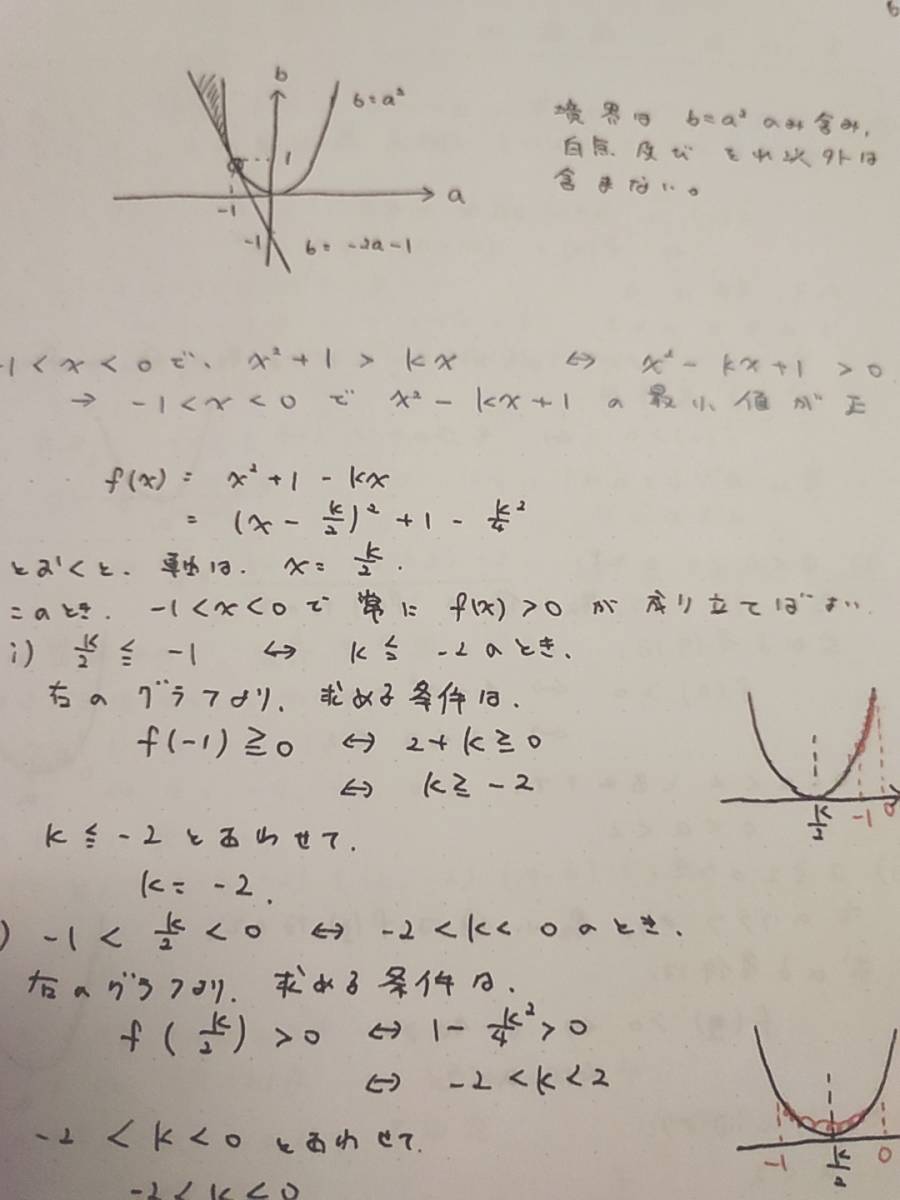 b
b
b=a²
1
a
-1
-1
b = -2a-1
境界は b=a² のみ含み,
白点及びそれ以外は
含まない。
-1<x<0で、x²+1 > kx ⇔ x²-kx+1 >0
→ -1<x<0で x²-kx+1 の最小値が正
f(x) = x²+1-kx
= (x - k/2)² + 1 - k²/4
とおくと、軸は、x = k/2.
このとき、-1<x<0で常に f(x)>0が成り立てばよい
i) k/2 ≦ -1 ⇔ k ≦ -2のとき、
右のグラフより、求める条件は、
f(-1) ≧ 0 ⇔ 2+k ≧ 0
⇔ k ≧ -2
k/2
-1
0
k ≦ -2 とあわせて、
k = -2.
) -1 < k/2 < 0 ⇔ -2<k<0のとき、
右のグラフより、求める条件は、
f(k/2) > 0 ⇔ 1 - k²/4 > 0
⇔ -2<k<2
-1
k/2
0
-2 < k < 0 とあわせて、
-2<k<0